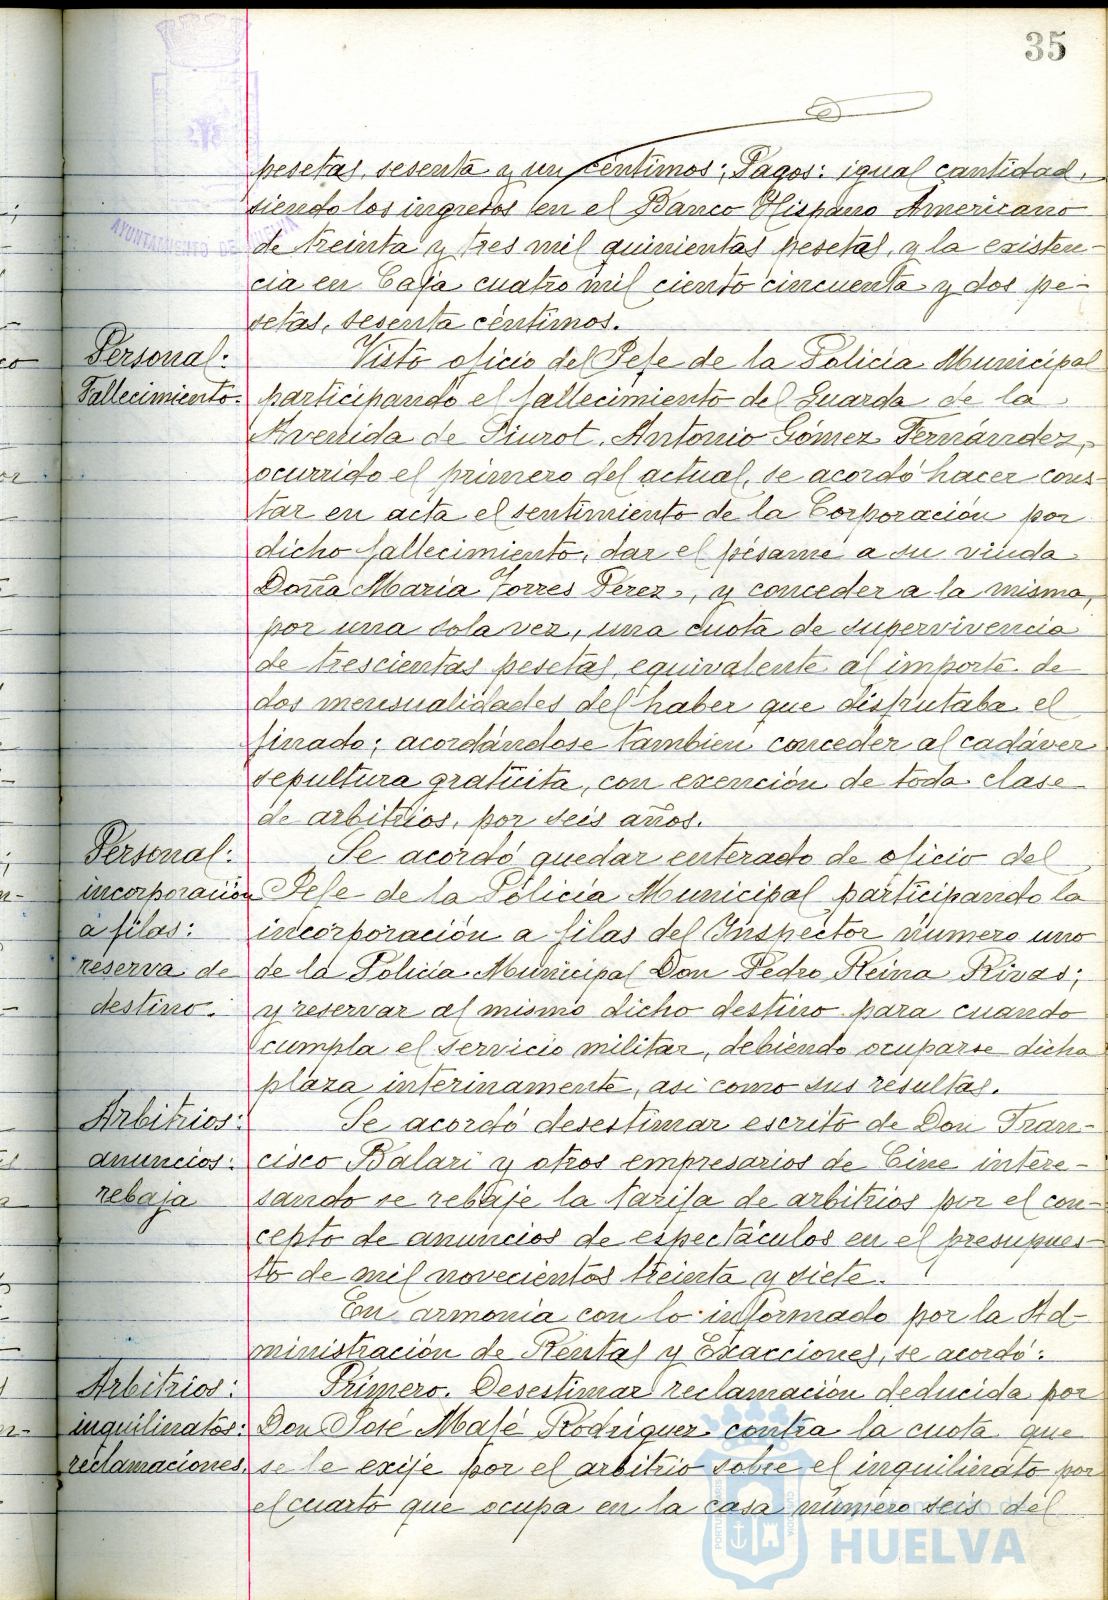 35
AYUNTAMIENTO DE HUELVA
pesetas, sesenta y un céntimos; Pagos: igual cantidad,
siendo los ingresos en el Banco Hispano Americano
de treinta y tres mil quinientas pesetas, y la existen-
cia en Caja cuatro mil ciento cincuenta y dos pe-
setas, sesenta céntimos.
Personal:
Fallecimiento.
Visto oficio del Jefe de la Policía Municipal
participando el fallecimiento del Guarda de la
Avenida de Siurot, Antonio Gómez Fernández,
ocurrido el primero del actual, se acordó hacer cons-
tar en acta el sentimiento de la Corporación por
dicho fallecimiento, dar el pésame a su viuda
Doña María Torres Pérez, y conceder a la misma,
por una sola vez, una cuota de supervivencia
de trescientas pesetas, equivalente al importe de
dos mensualidades del haber que disfrutaba el
finado; acordándose tambien conceder al cadáver
sepultura gratúita, con exención de toda clase
de arbitrios, por seis años.
Personal:
incorporación
a filas:
reserva de
destino.
Se acordó quedar enterado de oficio del
Jefe de la Policía Municipal participando la
incorporación a filas del Inspector número uno
de la Policía Municipal Don Pedro Reina Rivas;
y reservar al mismo dicho destino para cuando
cumpla el servicio militar, debiendo ocuparse dicha
plaza interinamente, asi como sus resultas.
Arbitrios:
anuncios:
rebaja
Se acordó desestimar escrito de Don Fran-
cisco Balari y otros empresarios de Cine intere-
sando se rebaje la tarifa de arbitrios por el con-
cepto de anuncios de espectáculos en el presupues-
to de mil novecientos treinta y siete.
En armonía con lo informado por la Ad-
ministración de Rentas y Exacciones, se acordó:
Arbitrios:
inquilinatos:
reclamaciones.
Primero. Desestimar reclamación deducida por
Don José Mafé Rodríguez contra la cuota que
se le exije por el arbitrio sobre el inquilinato por
el cuarto que ocupa en la casa número seis del
HUELVA